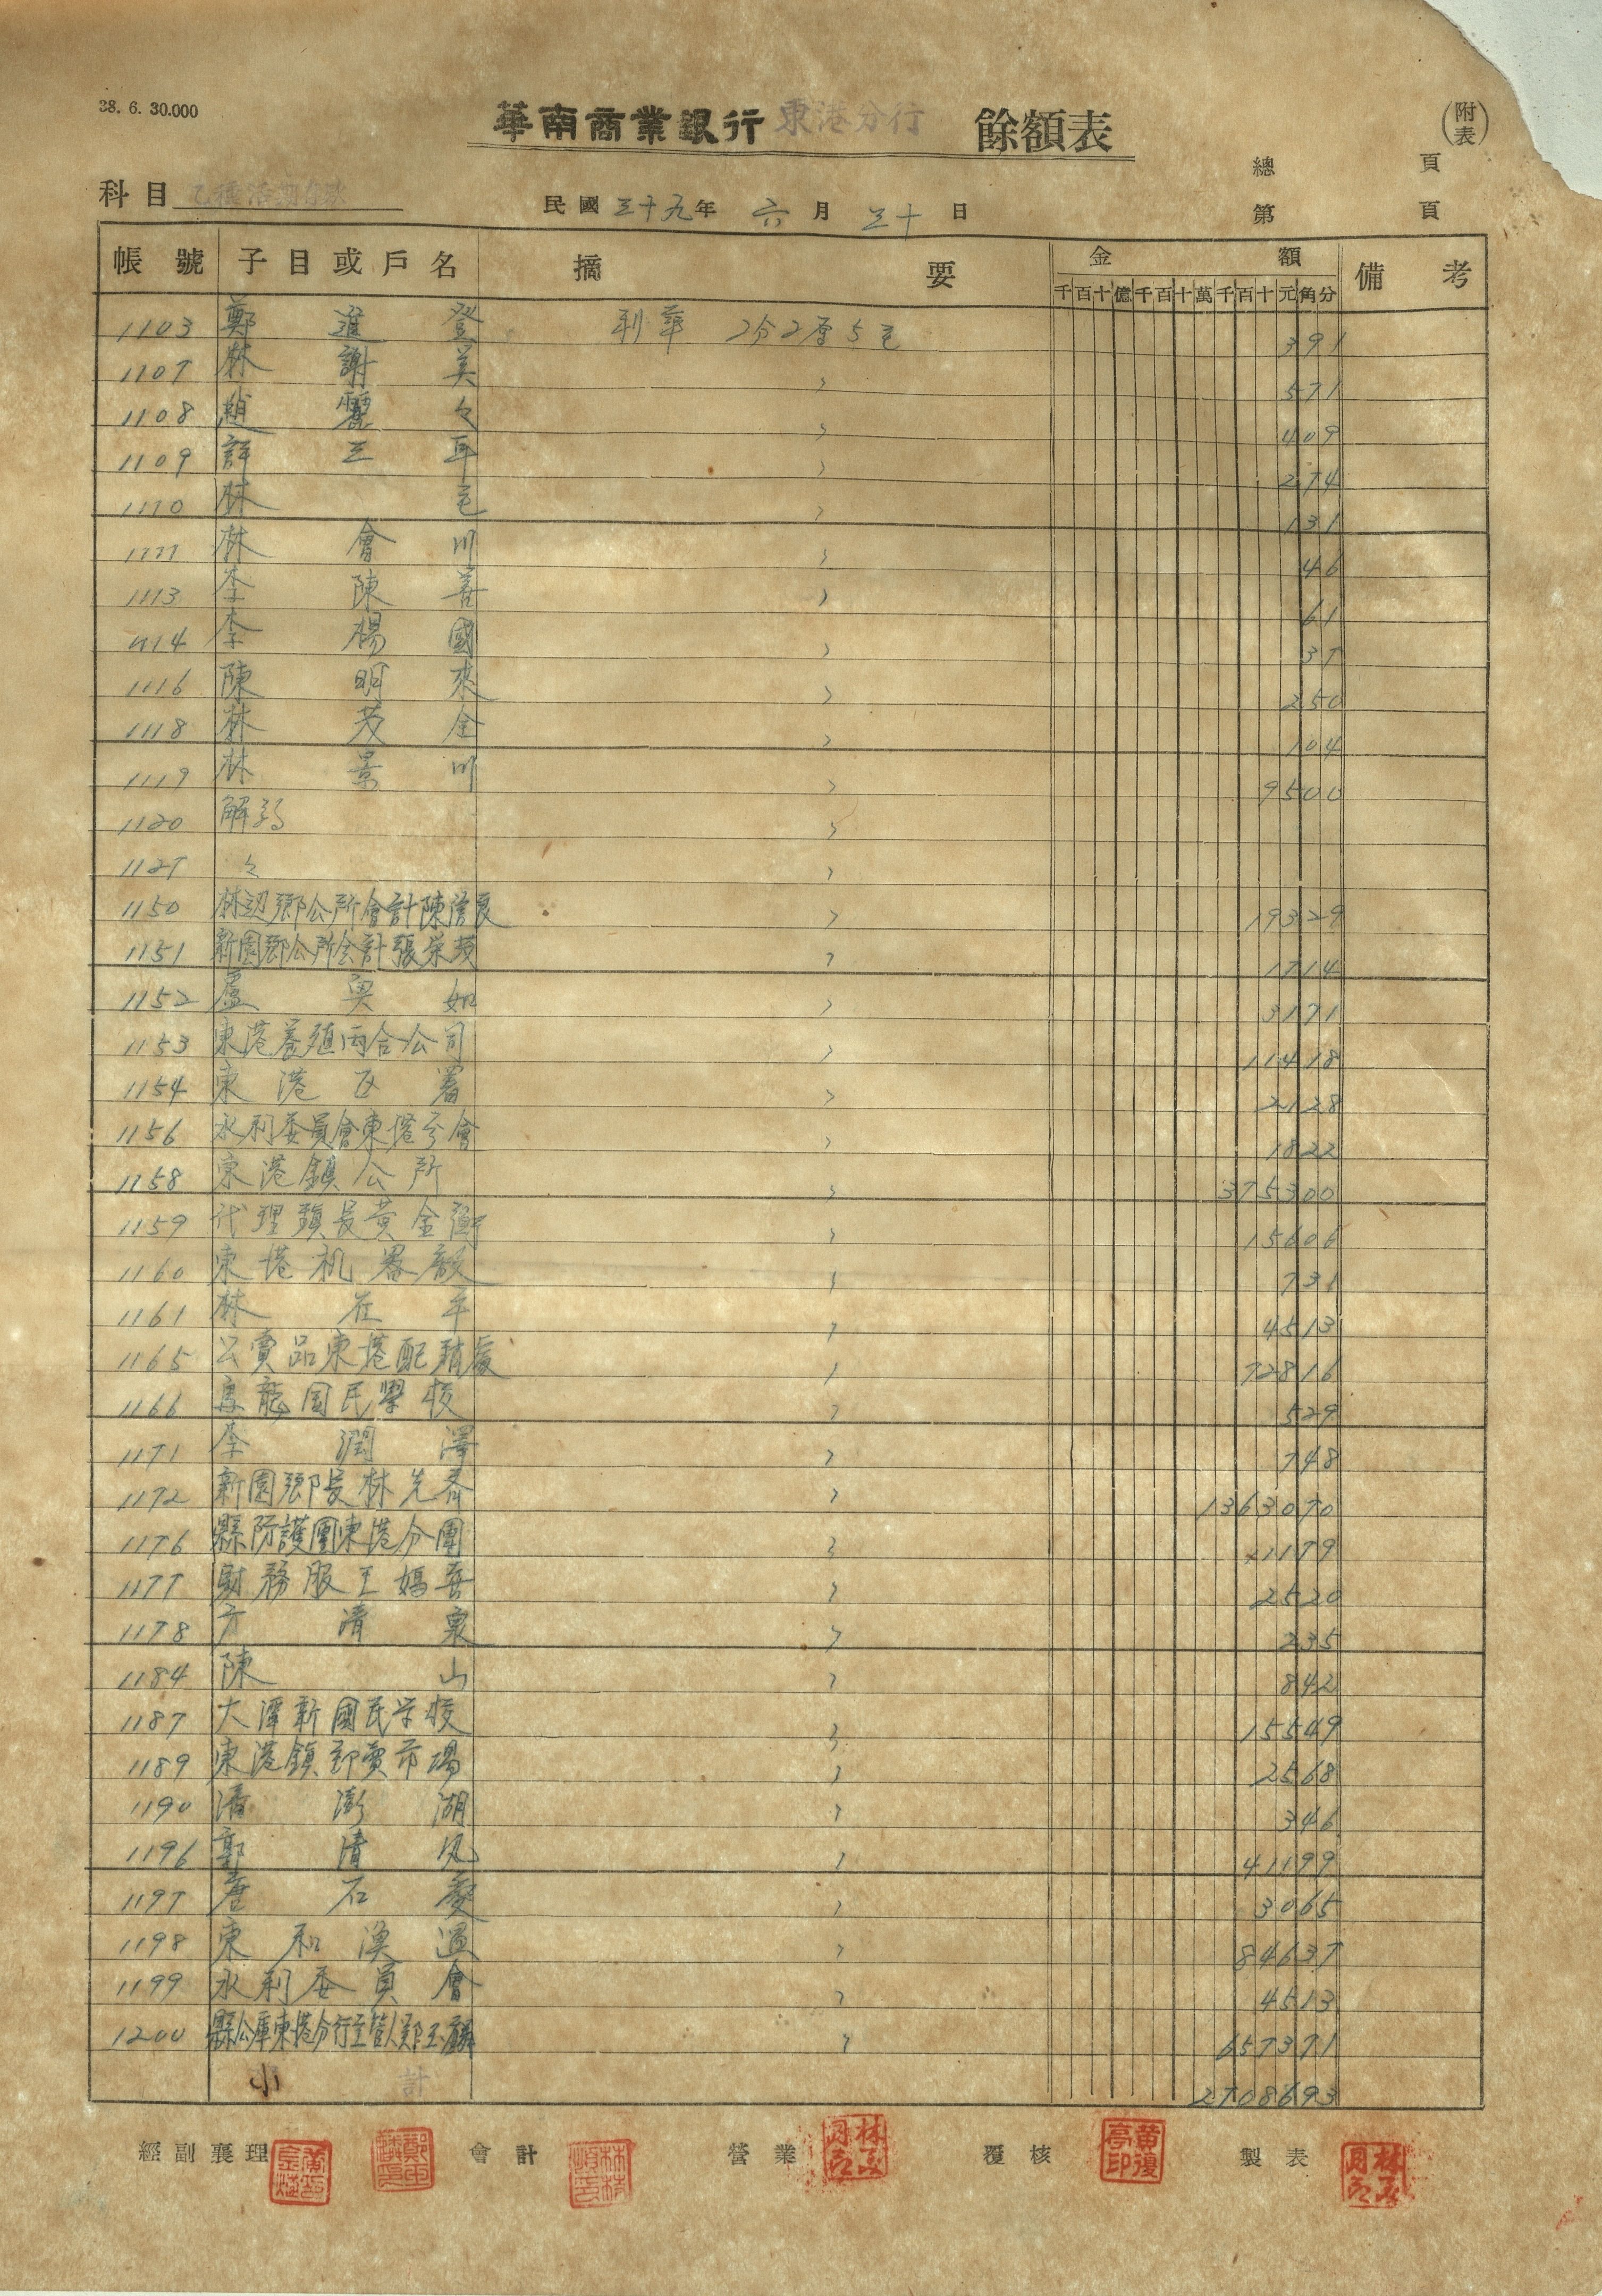 38. 6. 30.000
華南商業銀行 東港分行 餘額表
(附表)
總 頁
科目 乙種活期存款 民國 三十九年 六月 三十日 第 頁
帳號 子目或戶名 摘要 金額 備考
千百十億千百十萬千百十元角分
1103 鄭進登 利率 2分2厘5毛 391
1107 林謝美 〃 571
1108 趙霑々 〃 409
1109 許三耳 〃 274
1110 林毛 〃 131
1111 林會川 〃 46
1113 李陳善 〃 61
1114 李楊國 〃 37
1116 陳明來 〃 250
1118 林茂全 〃 104
1119 林景川 〃 9500
1120 解約 〃
1121 〃 〃
1150 林边鄉公所會計陳 〃 19329
1151 新園鄉公所会計張榮 〃 1714
1152 盧奧如 〃 3171
1153 東港養殖両合公司 〃 11418
1154 東港区署 〃 2128
1156 水利委員會東港分會 〃 1822
1158 東港鎮公所 〃 375300
1159 代理鎮長黃金 〃 15606
1160 東港机器廠 〃 731
1161 林在平 〃 4513
1165 公賣品東港配銷處 〃 72816
1166 烏龍国民學校 〃 529
1171 李潤澤 〃 748
1172 新園鄉長林先齊 〃 1363070
1176 縣防護團東港分團 〃 1179
1177 財務股王媽喜 〃 2520
1178 方清泉 〃 235
1184 陳山 〃 842
1187 大潭新國民学校 〃 15549
1189 東港鎮卸賣市場 〃 2568
1190 潘澎湖 〃 346
1196 郭清風 〃 41199
1197 唐石慶 〃 3065
1198 東和漢 〃 84637
1199 水利委員會 〃 4513
1200 縣公庫東港分行主管人鄭玉麟 〃 657371
小計 2708693
經副襄理 會計 營業 覆核 黃復亭印 製表